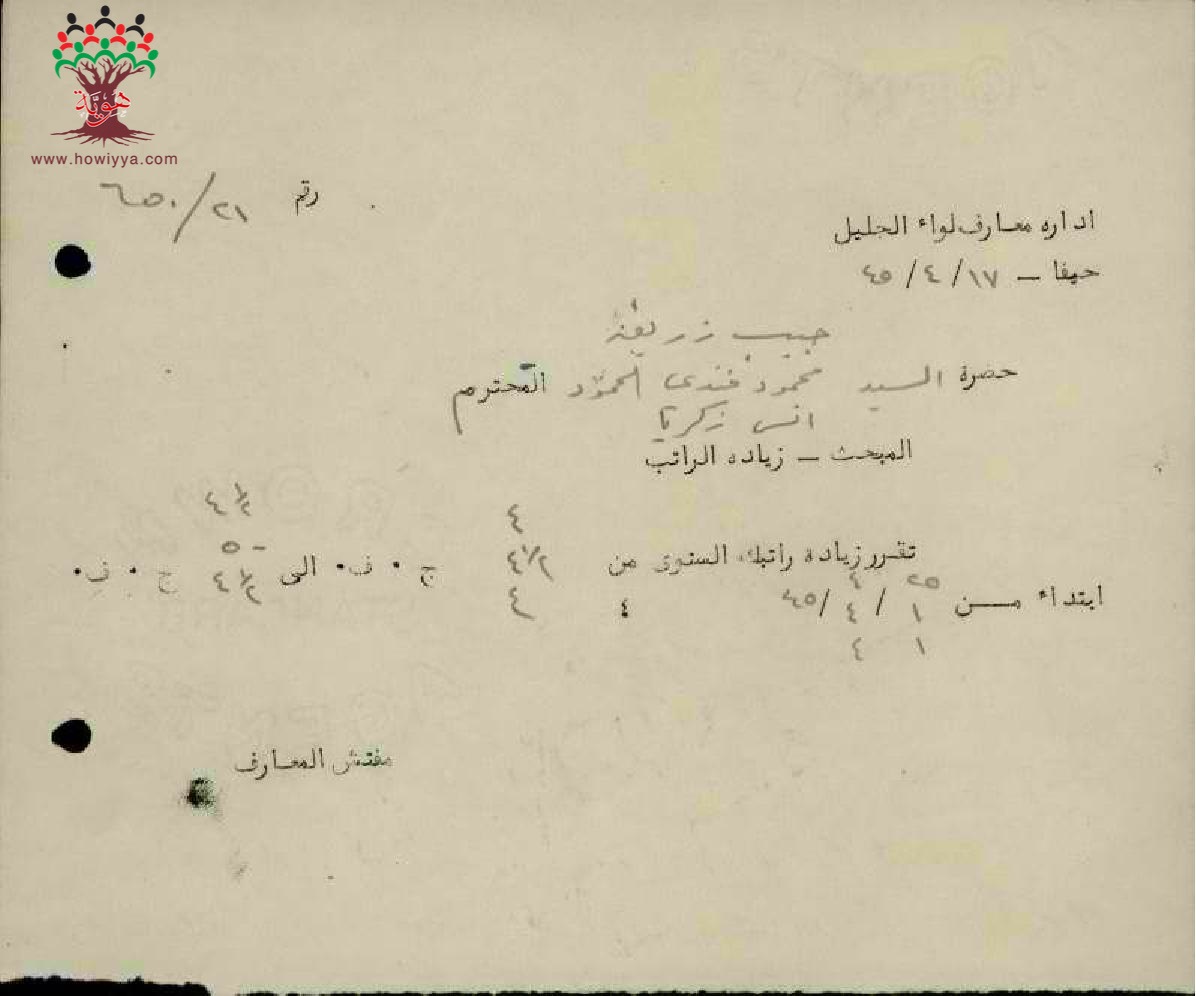 هوية
www.howiyya.com
رقم ٢١/٦٥٠
اداره معارف لواء الجليل
حيفا – ١٧/٤/٤٥
حبيب زريقه
حضرة السيد محمود فندي الحمود المحترم
انس زكريا
المبحث – زياده الراتب
٤ ٤½
تقرر زياده راتبك السنوى من ٤½ ج . ف . الى ٥- ج . ف .
٤ ٤½
ابتداء مـن ٢٥/٤ ١/٤/٤٥ ٤
١ ٤
مفتش المعارف